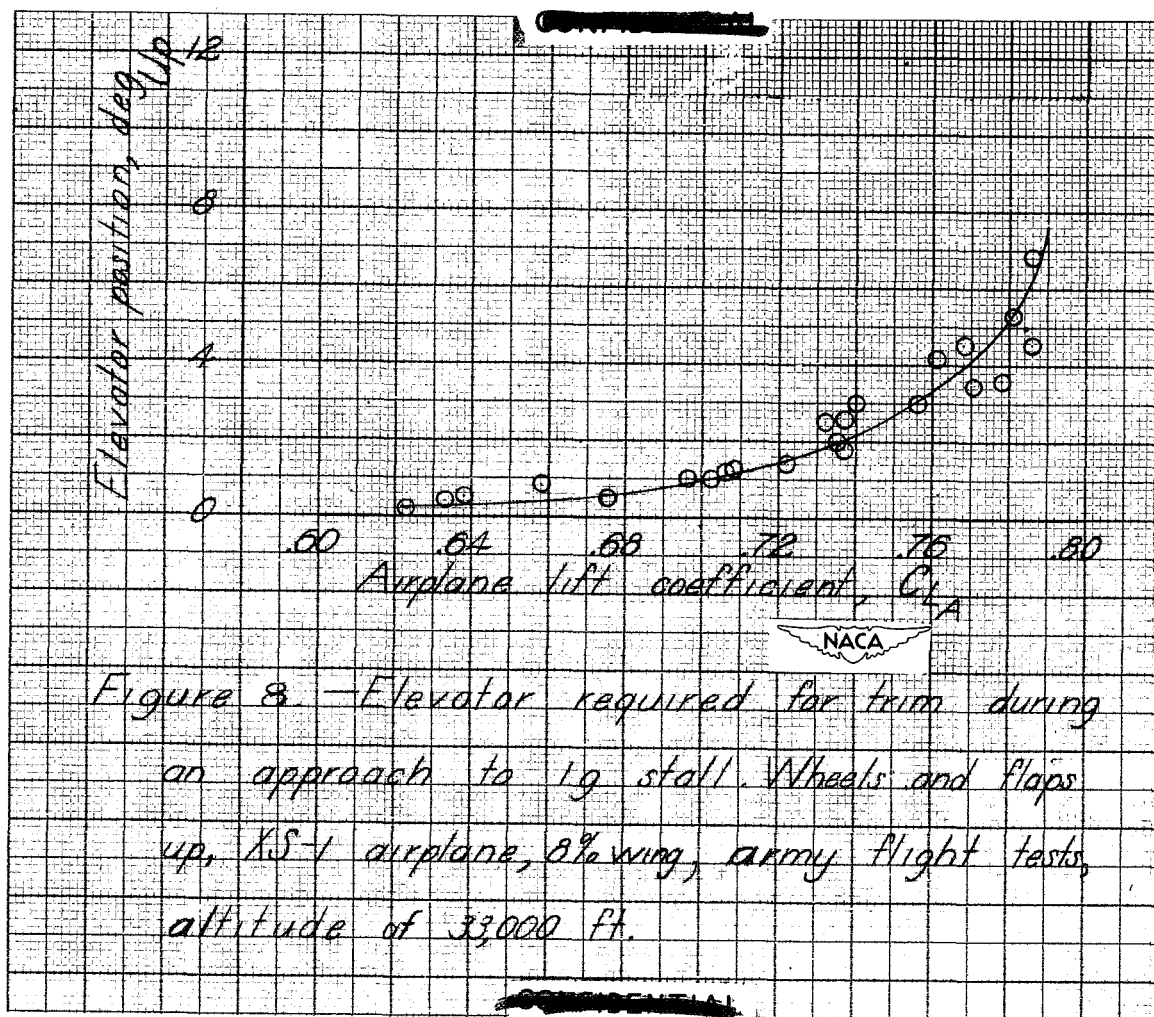 CONFIDENTIAL
Elevator position, deg
Up 12
8
4
0
.60 .64 .68 .72 .76 .80
Airplane lift coefficient, CLA
NACA
Figure 8. — Elevator required for trim during
an approach to 1g stall. Wheels and flaps
up, XS-1 airplane, 8% wing, army flight tests,
altitude of 33,000 ft.
CONFIDENTIAL